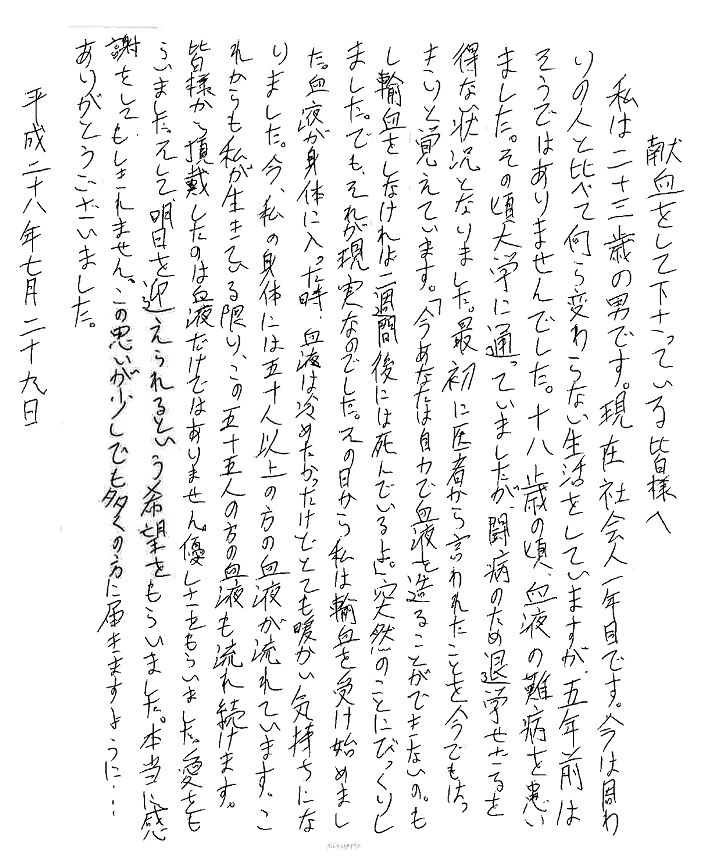 献血をして下さっている皆様へ
私は二十三歳の男です。現在社会人一年目です。今は周わ
りの人と比べて何ら変わらない生活をしていますが、五年前は
そうではありませんでした。十八歳の頃、血液の難病を患い
ました。その頃大学に通っていましたが、闘病のため退学せざるを
得な状況となりました。最初に医者から言われたことを今でもはっ
きりと覚えています。「今あなたは自力で血液を造ることができないの。も
し輸血をしなければ二週間後には死んでいるよ。」突然のことにびっくりし
ました。でも、それが現実なのでした。その日から私は輸血を受け始めまし
た。血液が身体に入った時、血液は冷めたかったけどとても暖かい気持ちにな
りました。今、私の身体には五十人以上の方の血液が流れています。こ
れからも私が生きている限り、この五十五人の方の血液も流れ続けます。
皆様から頂戴したのは血液だけではありません。優しさをもらいました。愛をも
らいました。そして、明日を迎えられるという希望をもらいました。本当に感
謝をしてもしきれません。この思いが少しでも多くの方に届きますように…
ありがとうございました。
平成二十八年七月二十九日